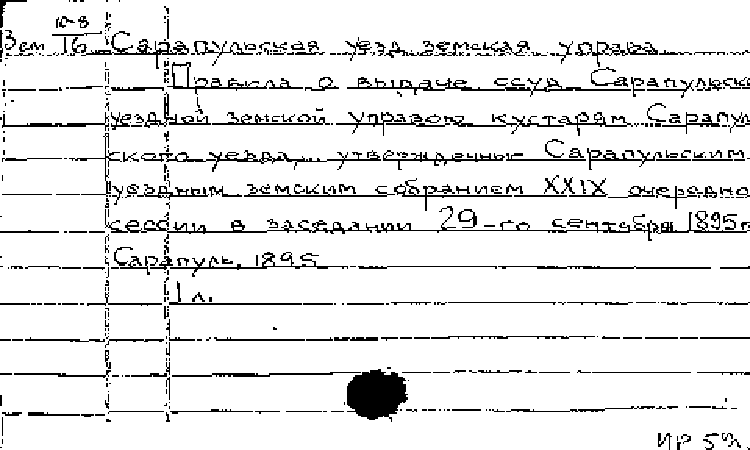 10-8
Зем 16 Сарапульская уезд. земская управа.
Правила о выдаче ссуд Сарапульско
уездной земской управою кустарям Сарапуль
ского уезда, утвержденные Сарапульским
уездным земским собранием XXIX очередно
сессии в заседании 29-го сентября 1895 г
Сарапуль, 1895
1 л.
ИР 59.